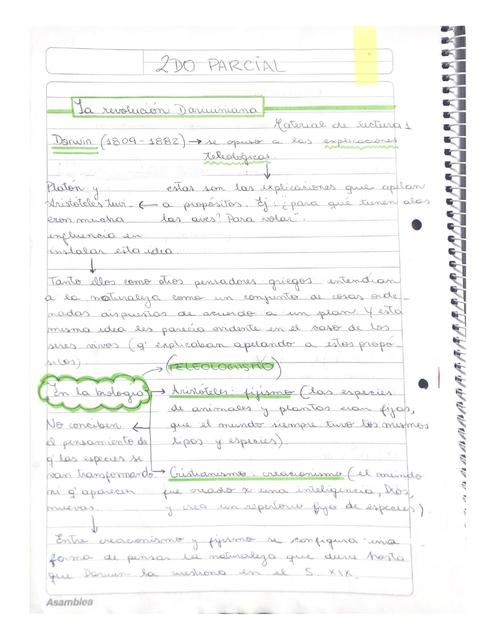 2DO PARCIAL
La revolución Darwiniana
Material de lectura 1
Darwin (1809-1882) → se opuso a las explicaciones
teleológicas
Platón y
Aristóteles tuvi-
eron mucha
influencia en
instalar esta idea
estas son las explicaciones que apelan
a propósitos. Ej: "¿para qué tienen alas
las aves? Para volar".
Tanto ellos como otros pensadores griegos entendían
a la naturaleza como un conjunto de cosas orde-
nadas dispuestas de acuerdo a un plan. Y esta
misma idea les parecía evidente en el caso de los
seres vivos (q' explicaban apelando a estos propó-
sitos)
(TELEOLOGISMO)
En la biología
Aristóteles: fijismo (las especies
de animales y plantas eran fijas,
que el mundo siempre tuvo los mismos
tipos y especies).
No conciben
el pensamiento de
q' las especies se
van transformando
ni q' aparecen
nuevas.
Cristianismo: creacionismo (el mundo
fue creado x una inteligencia, Dios,
y crea un repertorio fijo de especies)
Entre creacionismo y fijismo se configura una
forma de pensar la naturaleza que dura hasta
que Darwin la cuestiona en el S. XIX.
Asamblea